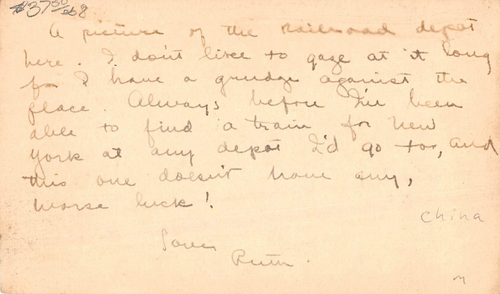 #3750/268
A picture of the railroad depot
here. I don't like to gaze at it long
for I have a grudge against the
place. Always before I've been
able to find a train for New
York at any depot I'd go to, and
this one doesn't have any,
worse luck!
China
Love
Ruth.